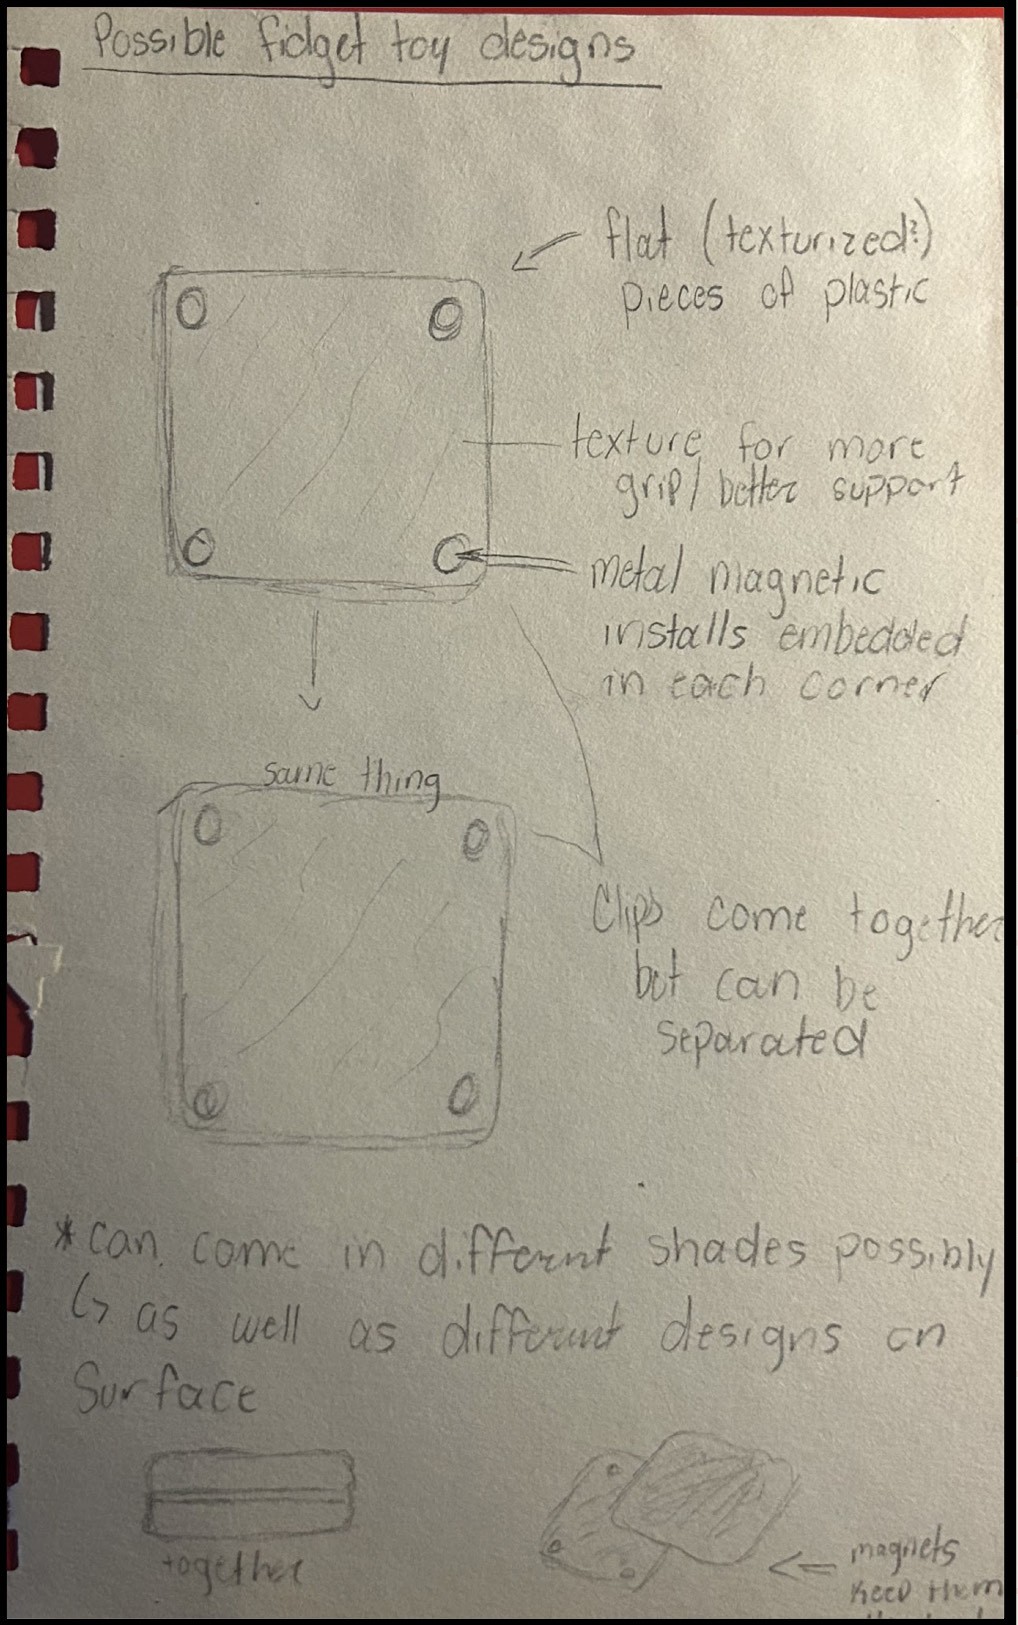 Possible fidget toy designs
flat (texturized?)
pieces of plastic
texture for more
grip/ better support
metal magnetic
installs embedded
in each corner
same thing
Clips come together
but can be
separated
*can come in different shades possibly
↳ as well as different designs on
Surface
together
magnets
keep them